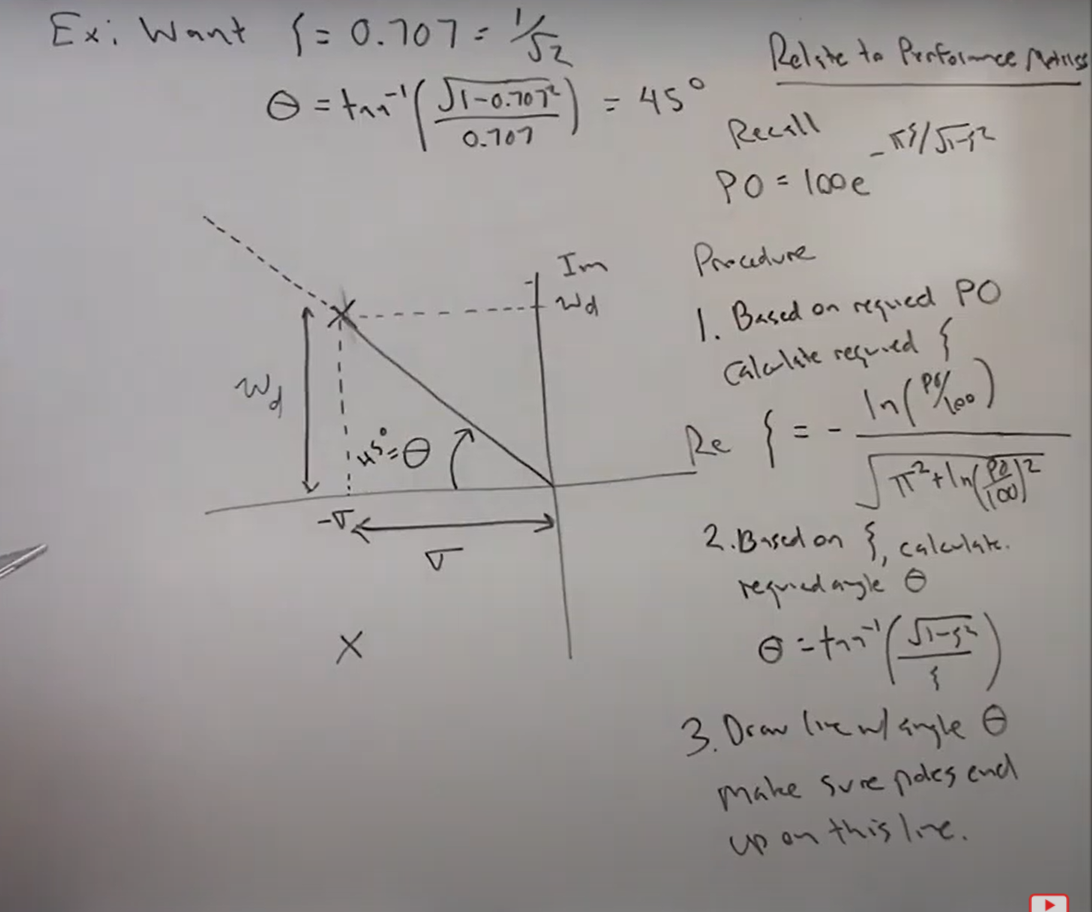 Ex: Want ζ = 0.707 = 1/√2
θ = tan⁻¹(√(1-0.707²)/0.707) = 45°
Relate to Performance Metrics
Recall
PO = 100e^(-πζ/√(1-ζ²))
Im
ωd
ωd
45°=θ
-σ
σ
Re
Procedure
1. Based on required PO
Calculate required ζ
ζ = - ln(PO/100) / √(π² + ln(PO/100)²)
2. Based on ζ, calculate.
required angle θ
θ = tan⁻¹(√(1-ζ²)/ζ)
3. Draw line w/ angle θ
make sure poles end
up on this line.